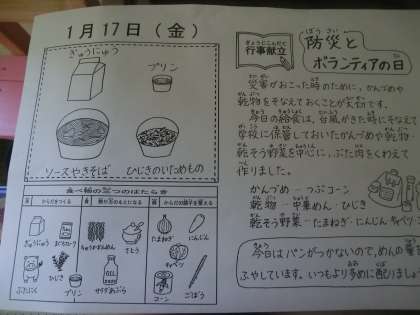 1月17日(金)
ぎゅうにゅう
プリン
ソースやきそば
ひじきのいためもの
食べ物の三つのはたらき
赤 からだをつくる
黄 熱や力のもとになる
緑 からだの調子を整える
ぎゅうにゅう
ぶたにく
ひじき
プリン
ちゅうかめん
さとう
サラダあぶら
OIL
たまねぎ
にんじん
キャベツ
コーン
ごぼう
ぎょうじこんだて
行事献立
ぼうさい
防災と
ボランティアの日
災害がおこった時のために、かんづめや
乾物をそなえておくことが大切です。
今日の給食は、台風がきた時にそなえて
学校に保管しておいたかんづめや乾物、
乾そう野菜を中心に、ぶた肉をくわえて
作りました。
かんづめ―つぶコーン
乾物―中華めん・ひじき
乾そう野菜―たまねぎ・にんじん・キャベツ
今日はパンがつかないので、めんの量を
ふやしています。いつもより多めに配りましょ